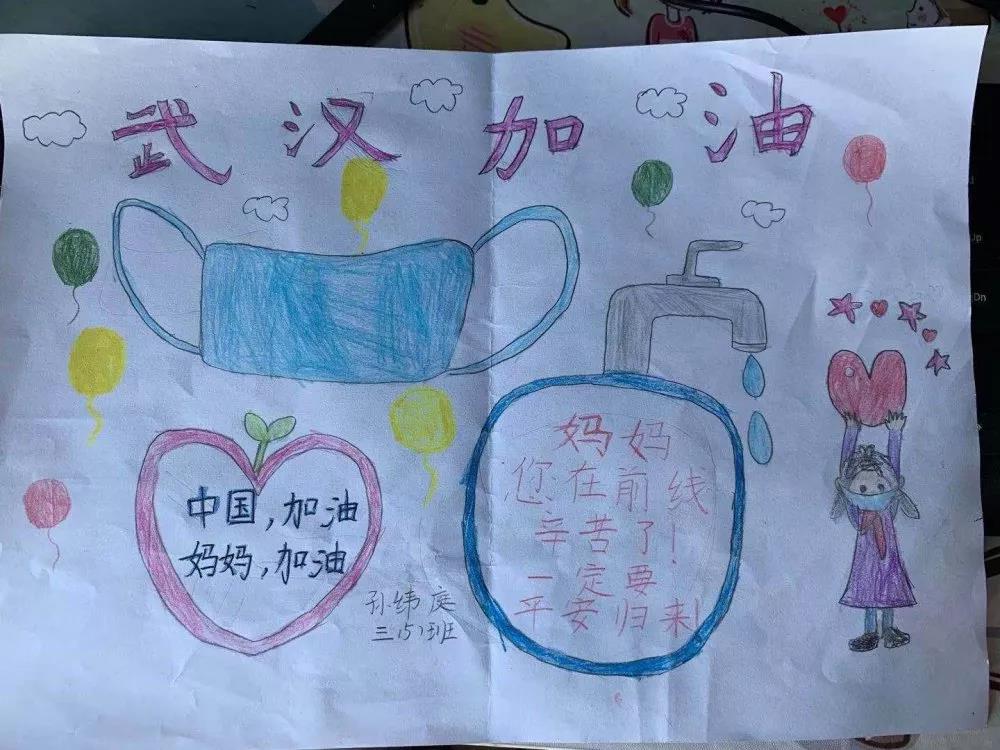 武汉加油
中国，加油
妈妈，加油
孙纬庭
三(5)班
妈妈
您在前线
辛苦了！
一定要
平安归来